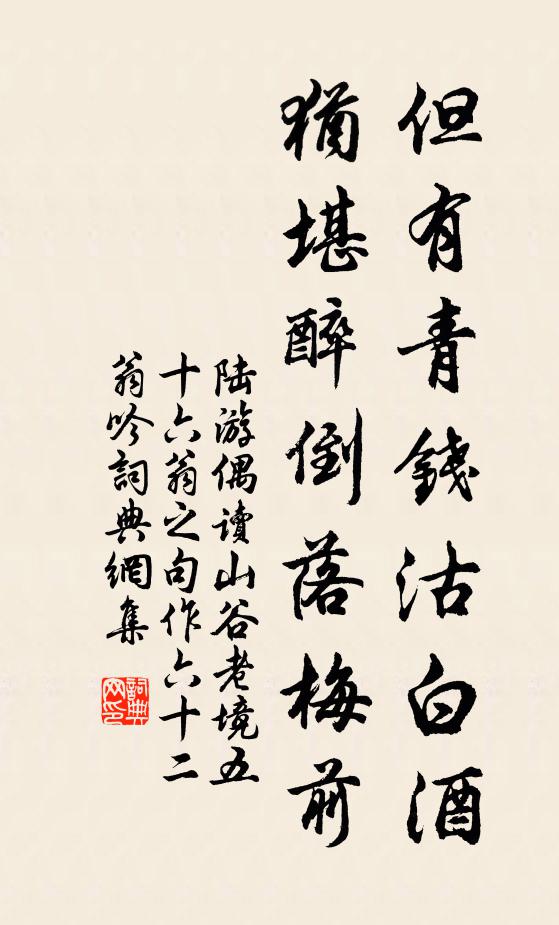 但有青錢沽白酒
猶堪醉倒落梅前
陆游偶读山谷老境五
十六翁之句作六十二
翁吟詞典網集
詞典
网印